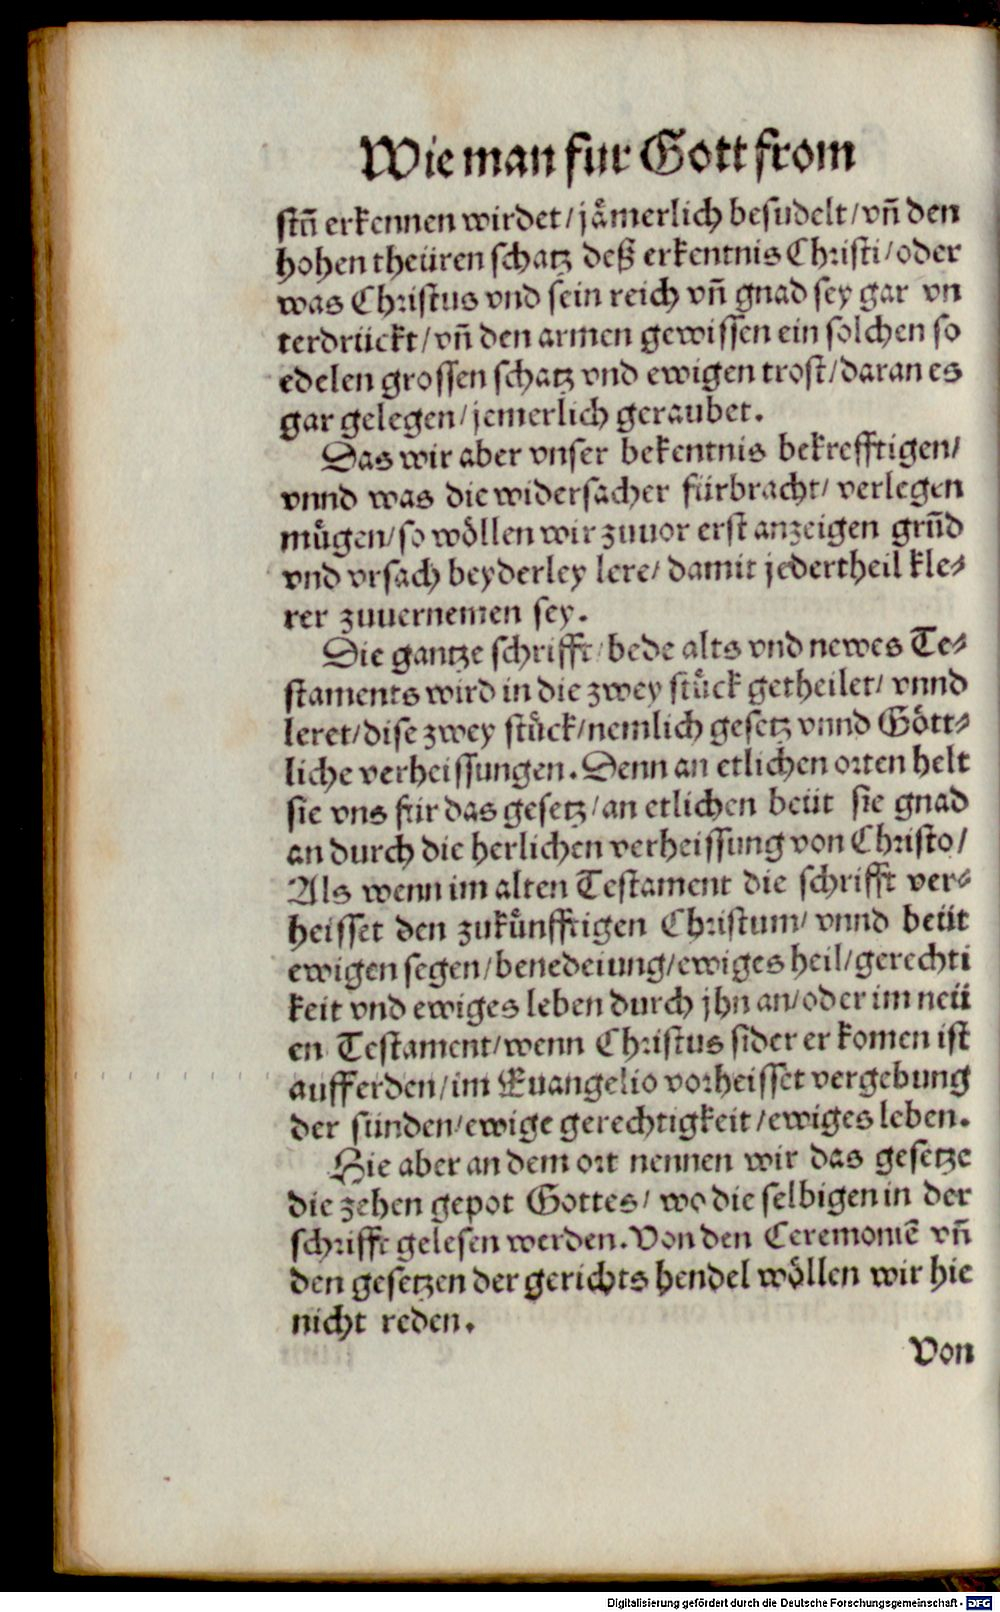 Wie man fur Gott from
stñ erkennen wirdet/jämerlich besudelt/vñ den
hohen theüren schatz deß erkentnis Christi/oder
was Christus vnd sein reich vñ gnad sey gar vn
terdrückt/vñ den armen gewissen ein solchen so
edelen grossen schatz vnd ewigen trost/daran es
gar gelegen/jemerlich geraubet.
Das wir aber vnser bekentnis bekrefftigen/
vnnd was die widersacher fürbracht/ verlegen
mügen/so wöllen wir zuuor erst anzeigen grũd
vnd vrsach beyderley lere/ damit jedertheil kle⸗
rer zuuernemen sey.
Die gantze schrifft/bede alts vnd newes Te⸗
staments wird in die zwey stück getheilet/ vnnd
leret/dise zwey stück/nemlich gesetz vnnd Gött⸗
liche verheissungen. Denn an etlichen orten helt
sie vns für das gesetz/an etlichen beüt sie gnad
an durch die herlichen verheissung von Christo/
Als wenn im alten Testament die schrifft ver⸗
heisset den zukünfftigen Christum/ vnnd beüt
ewigen segen/benedeiung/ewiges heil/gerechti
keit vnd ewiges leben durch jhn an/oder im neü
en Testament/wenn Christus sider er komen ist
auff erden/im Euangelio vorheisset vergebung
der sünden/ewige gerechtigkeit/ewiges leben.
Hie aber an dem ort nennen wir das gesetze
die zehen gepot Gottes/ wo die selbigen in der
schrifft gelesen werden. Von den Ceremoniẽ vñ
den gesetzen der gerichts hendel wöllen wir hie
nicht reden.
Von
Digitalisierung gefördert durch die Deutsche Forschungsgemeinschaft - DFG